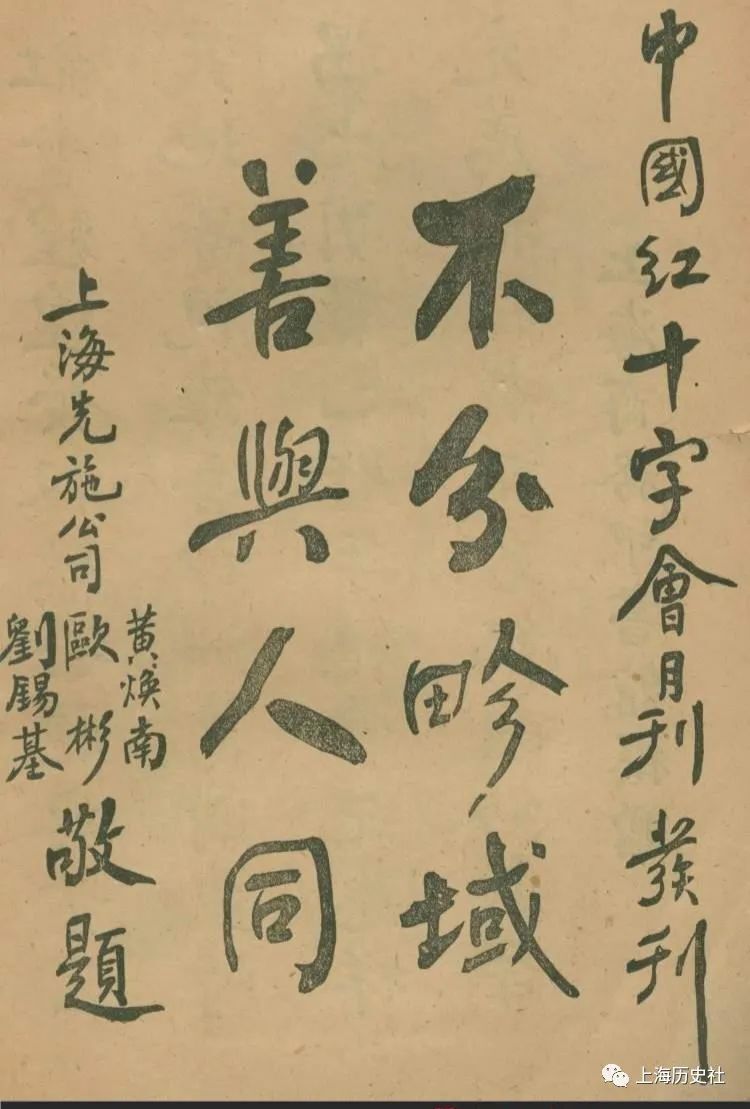 中國红十字會月刊發刊
不分畛域
善與人同
上海先施公司
黄焕南
歐彬
劉錫基
敬題
上海历史社